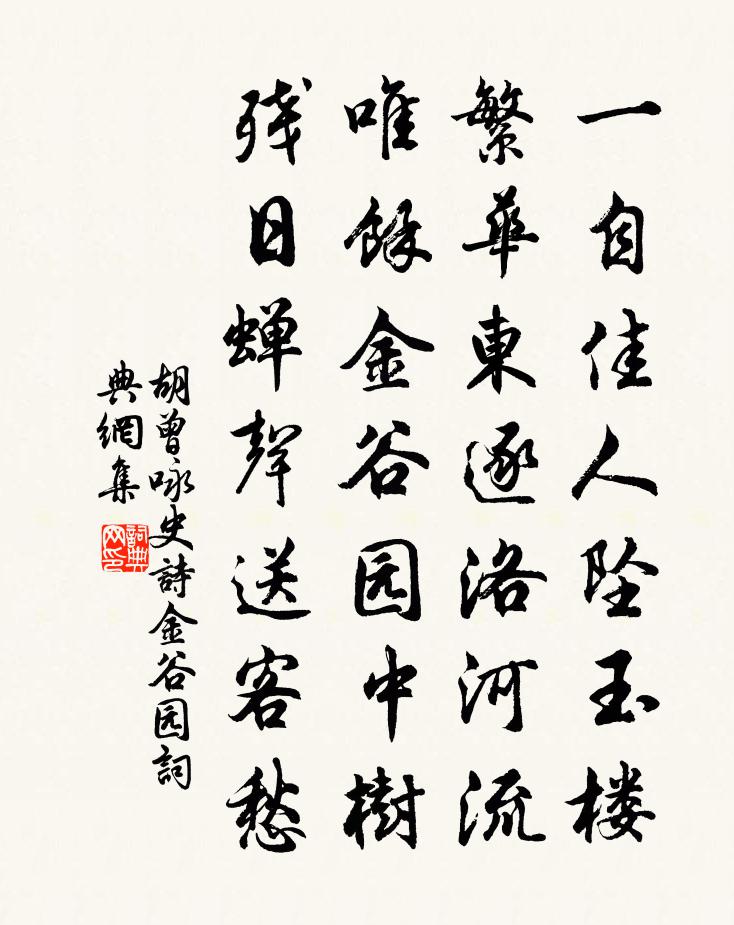 一自佳人坠玉楼
繁華東逐洛河流
唯餘金谷园中樹
残日蝉聲送客愁
胡曾咏史詩金谷园詞
典網集
詞典
网印